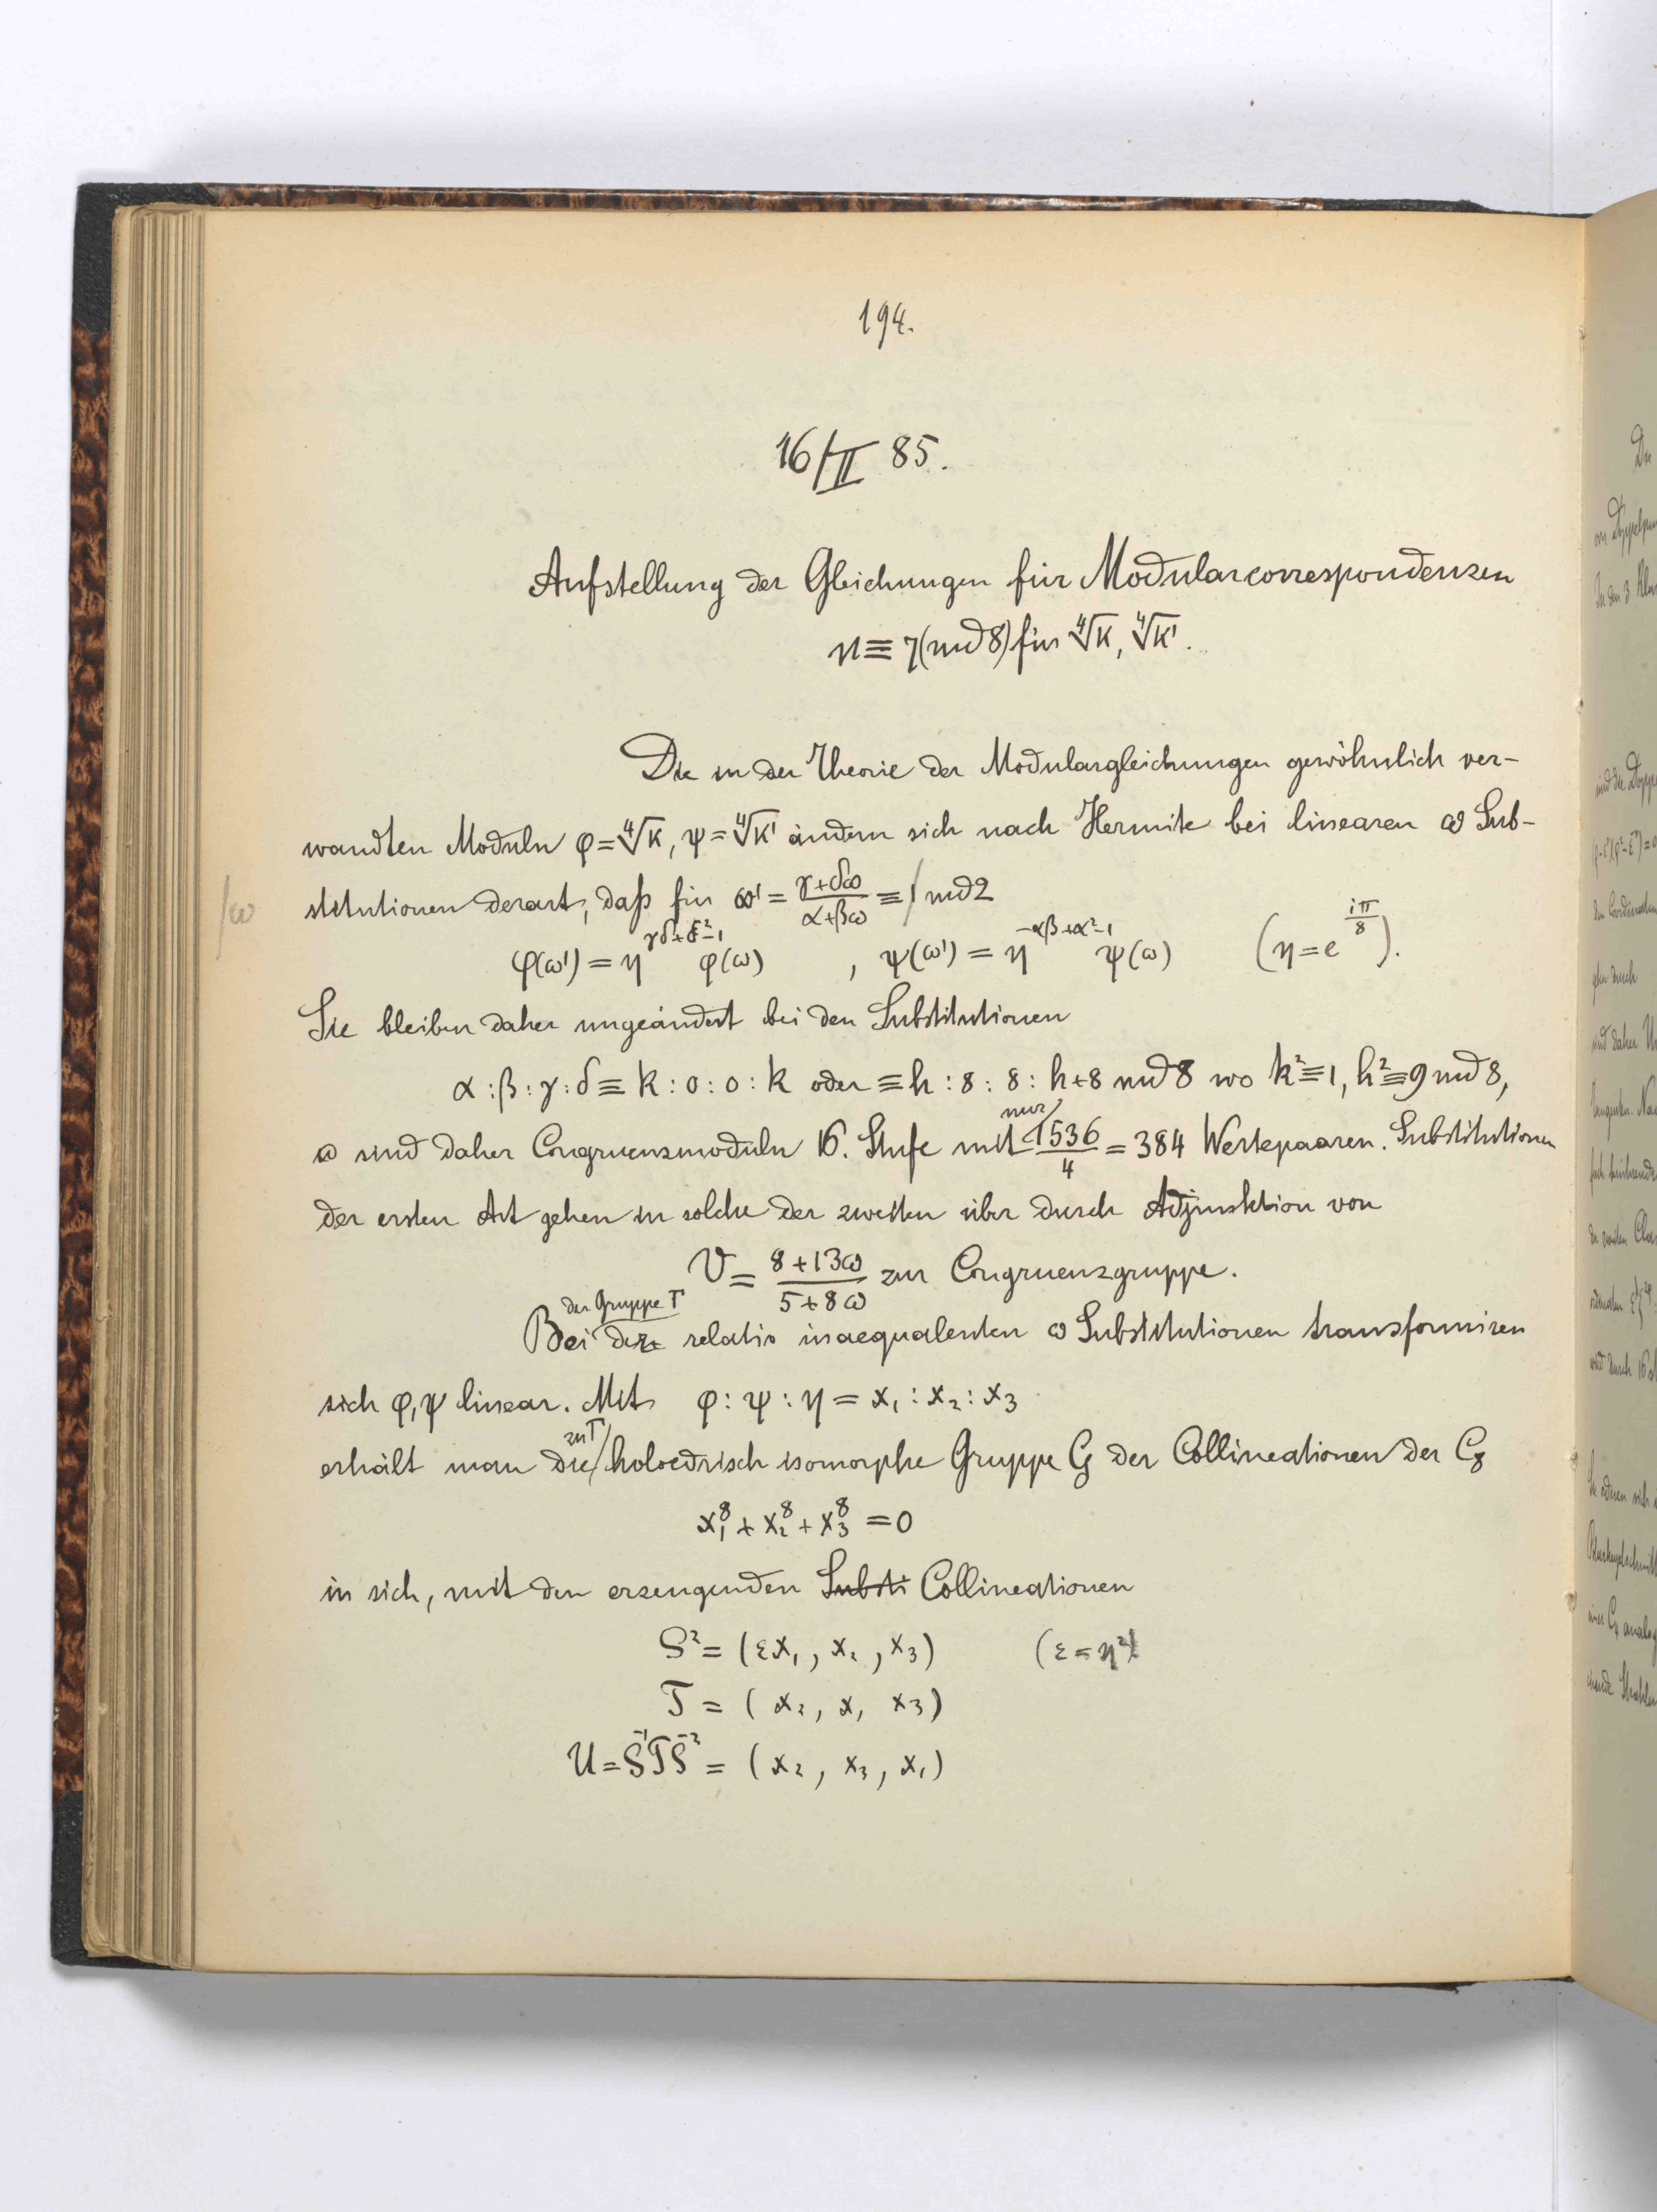 194.
16/II 85.
Aufstellung der Gleichungen für Modularcorrespondenzen
n ≡ 7(mod 8) für ∜k, ∜k'.
Die in der Theorie der Modulargleichungen gewöhnlich ver-
wandten Moduln φ = ∜k, ψ = ∜k' ändern sich nach Hermite bei linearen ω Sub-
/ω stitutionen derart, daß für ω' = (γ+δω)/(α+βω) ≡ / mod 2
φ(ω') = η^{γδ+δ²-1} φ(ω) , ψ(ω') = η^{-αβ+α²-1} ψ(ω) (η = e^{iπ/8}).
Sie bleiben daher ungeändert bei den Substitutionen
α : β : γ : δ ≡ k : 0 : 0 : k oder ≡ h : 8 : 8 : h+8 mod 8 wo k² ≡ 1, h² ≡ 9 mod 8,
sind daher Congruenzmoduln 16. Stufe mit nur 1536/4 = 384 Wertepaaren. Substitutionen
der ersten Art gehen in solche der zweiten über durch Adjunktion von
V = (8+13ω)/(5+8ω) zur Congruenzgruppe.
der Gruppe Γ
Bei der relativ inaequalenten ω Substitutionen transformiren
sich φ, ψ linear. Mit φ : ψ : η = x₁ : x₂ : x₃
erhält man die zu Γ holoedrisch isomorphe Gruppe G der Collineationen der C₈
x₁⁸ + x₂⁸ + x₃⁸ = 0
in sich, mit den erzeugenden Substi Collineationen
S² = (εx₁, x₂, x₃) (ε = η²)
T = (x₂, x₁ x₃)
U = S⁻¹TS⁻² = (x₂, x₃, x₁)